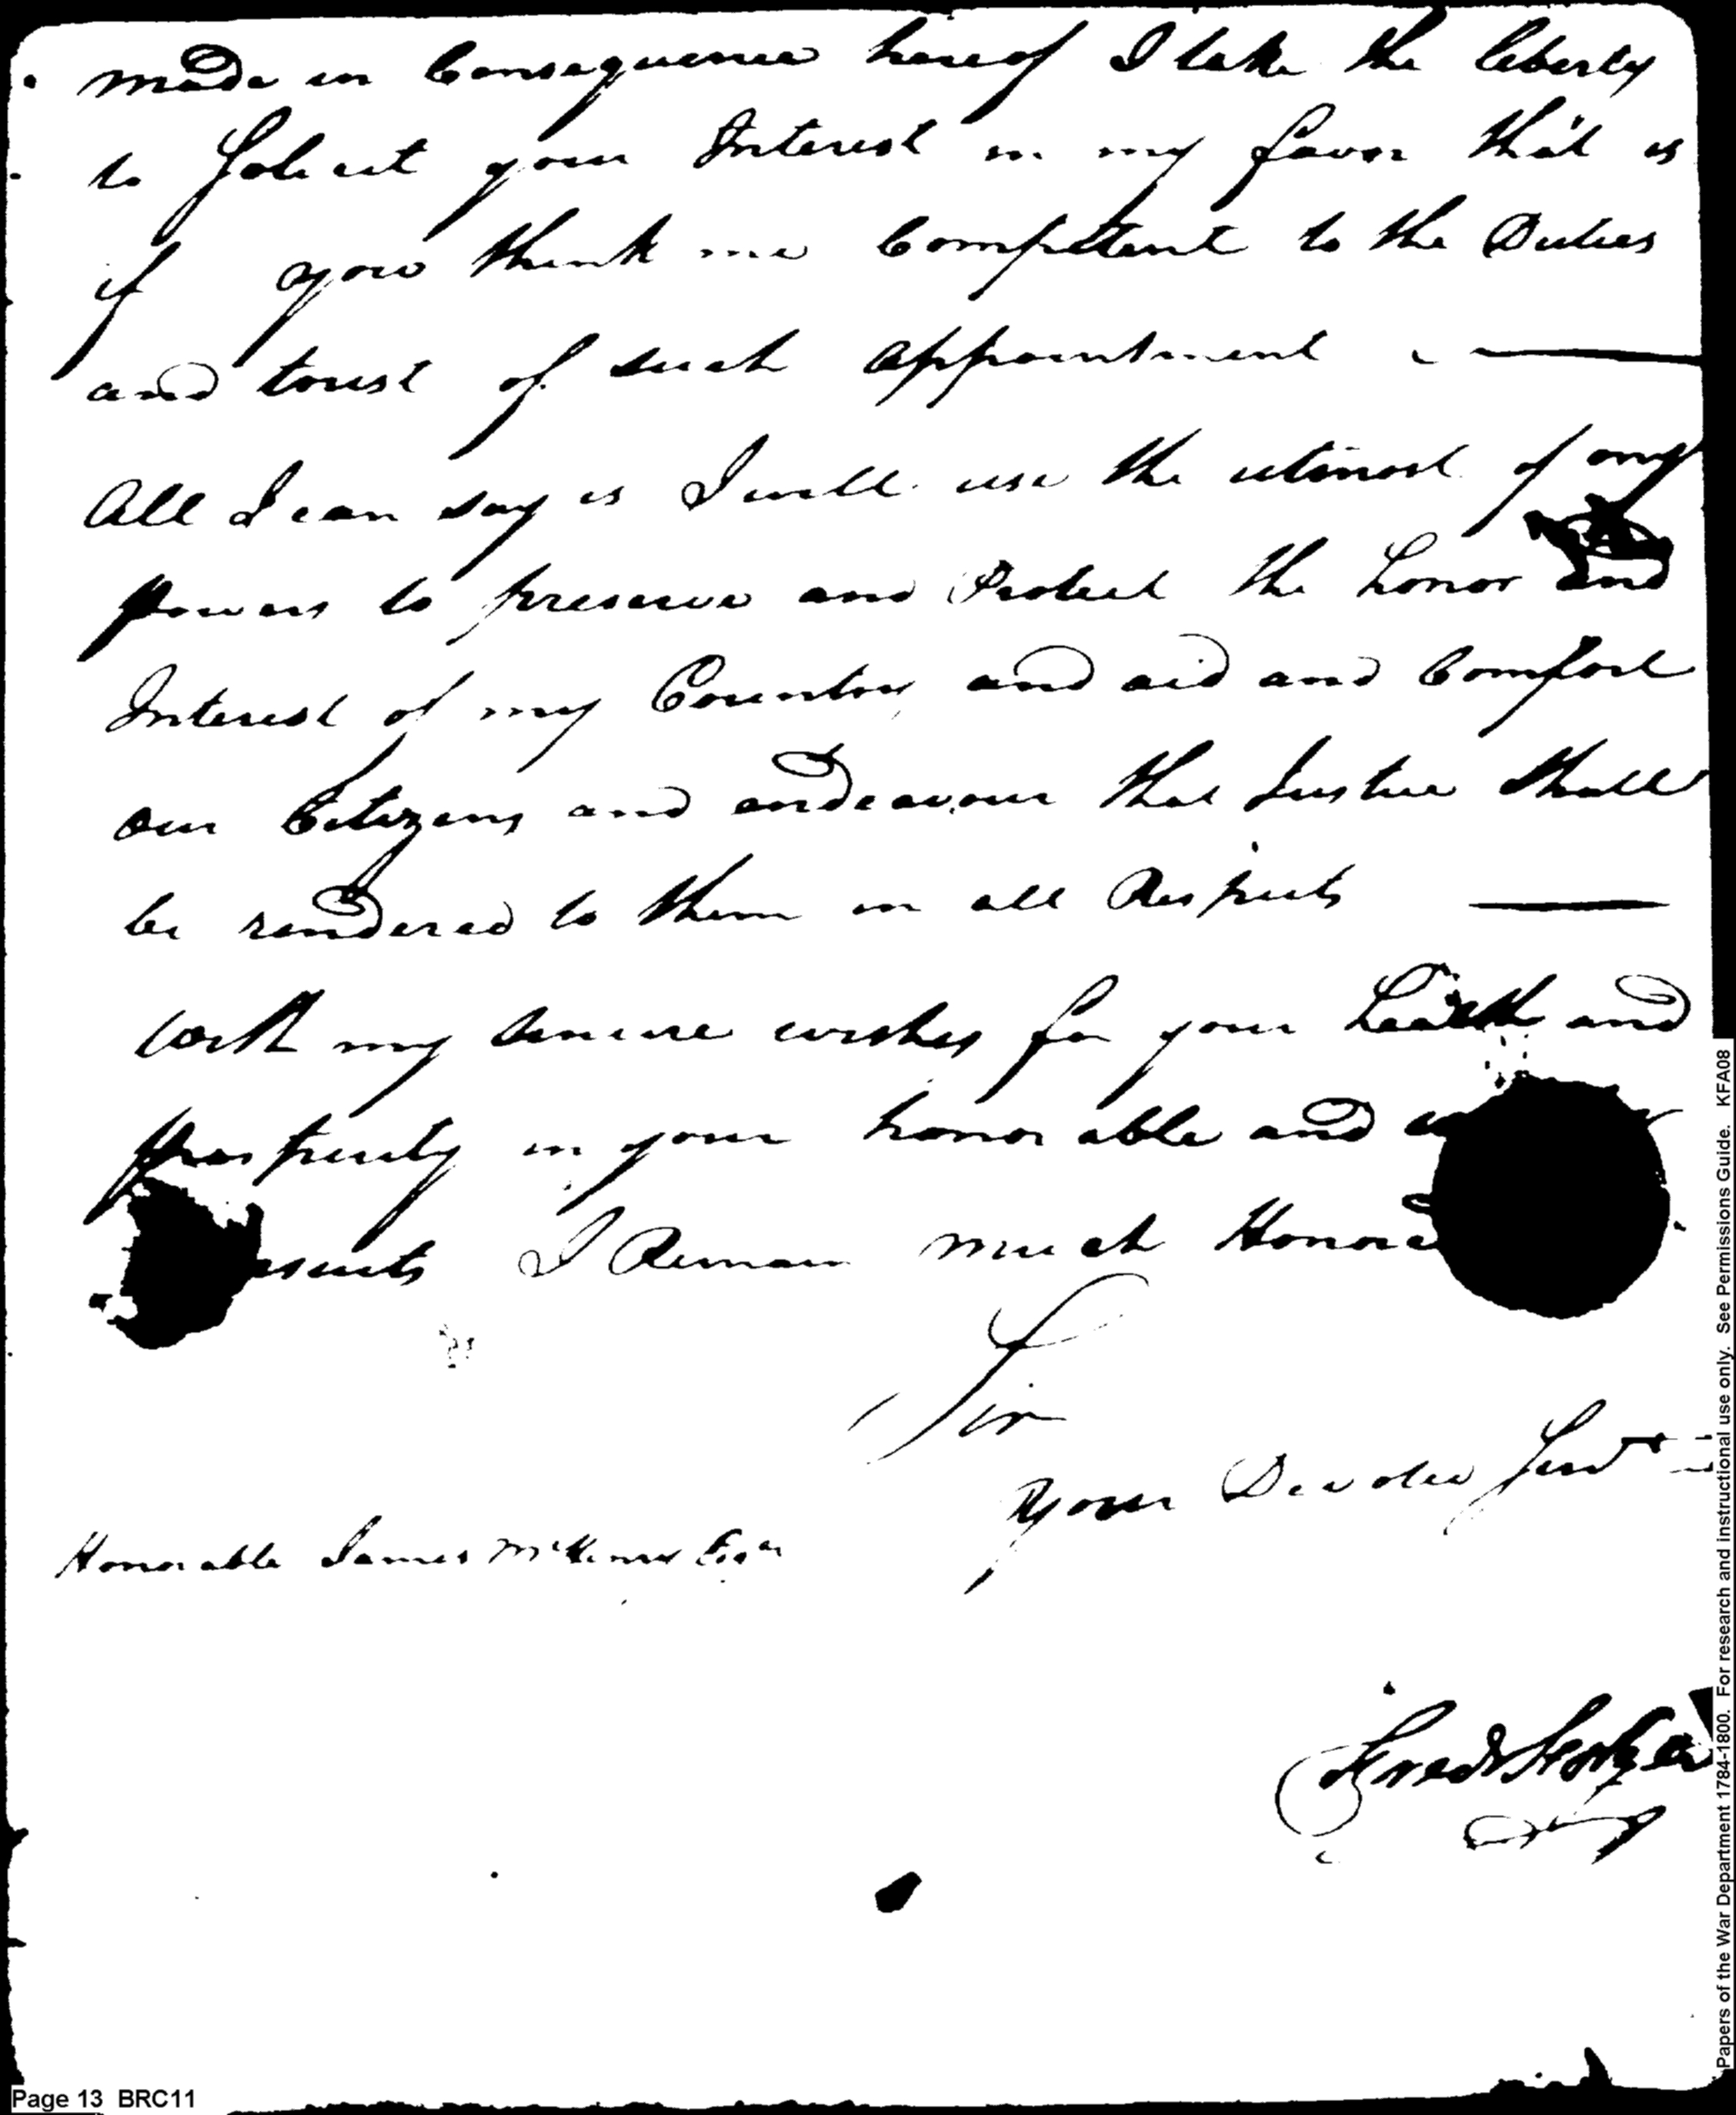 made in Consequence hereof I take the liberty
to Solicit your Interest in my favor that is
if you think me Competent to the Duties
and trust of such appointment
All I can say is I will use the utmost of my
powers to preserve and Protect the honor and
Interest of my Country and aid and Comfort
our Citizens and endeavour that Justice shall
be rendered to them in all Respects
With my sincere wishes for your health and
prosperity in your honorable and
I Remain much Honored
Sir
Your Devoted Servt
Honorable James McHenry Esqr
Page 13 BRC11
Papers of the War Department 1784-1800. For research and instructional use only. See Permissions Guide. KFA08